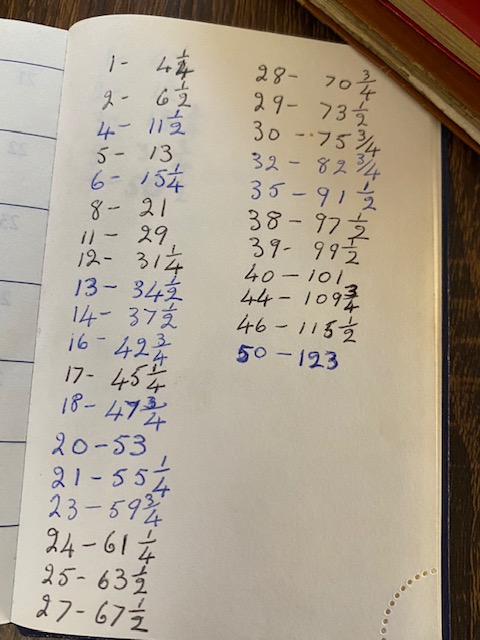 1- 4 1/4
2- 6 1/2
4- 11 1/2
5- 13
6- 15 1/4
8- 21
11- 29
12- 31 1/4
13- 34 1/2
14- 37 1/2
16- 42 3/4
17- 45 1/4
18- 47 3/4
20-53
21-55 1/4
23-59 3/4
24-61 1/4
25-63 1/2
27-67 1/2
28- 70 3/4
29- 73 1/2
30-75 3/4
32-82 3/4
35-91 1/2
38-97 1/2
39-99 1/2
40-101
44-109 3/4
46-115 1/2
50-123